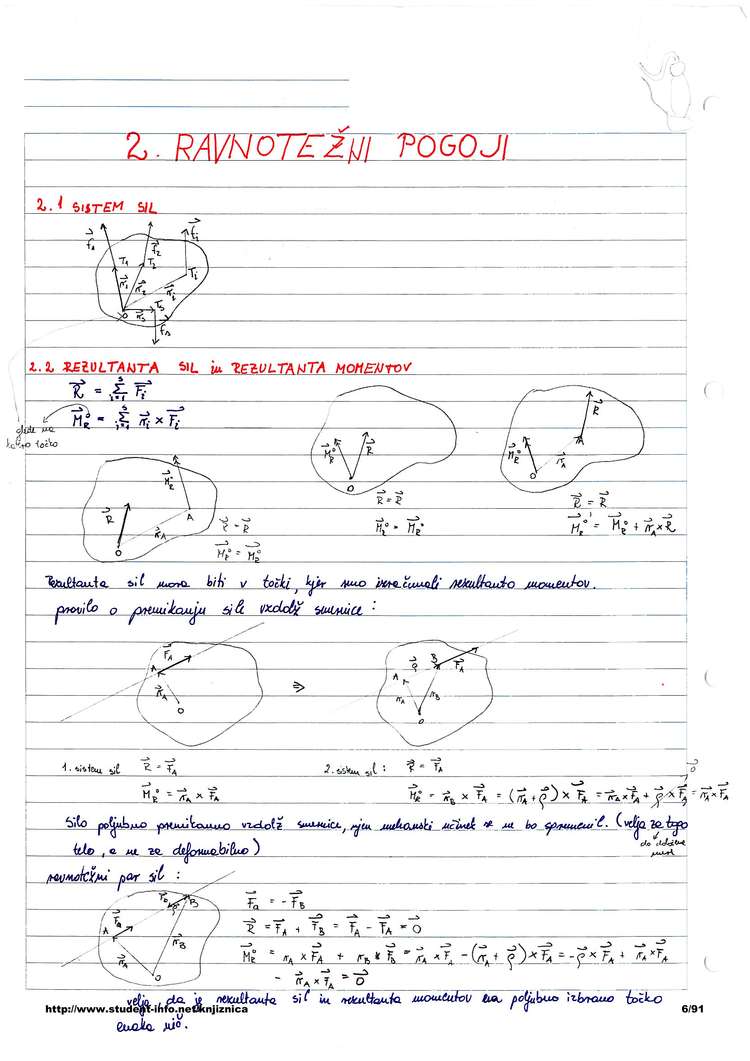 2. RAVNOTEŽNI POGOJI
2.1 SISTEM SIL
2.2 REZULTANTA SIL in REZULTANTA MOMENTOV
R⃗ = Σ F⃗ᵢ
M⃗_R⁰ = Σ r⃗ᵢ × F⃗ᵢ
glede na
katero točko
R⃗ = R⃗
M⃗_R⁰ = M⃗_R⁰
R⃗ = R⃗
M⃗_R⁰' = M⃗_R⁰ + r⃗_A × R⃗
R⃗ = R⃗
M⃗_R⁰ = M⃗_R⁰
Rezultanta sil mora biti v točki, kjer smo izračunali rezultanto momentov.
pravilo o premikanju sile vzdolž smernice :
⇒
1. sistem sil R⃗ = F⃗_A
M⃗_R⁰ = r⃗_A × F⃗_A
2. sistem sil : R⃗ = F⃗_A
M⃗_R⁰ = r⃗_B × F⃗_A = (r⃗_A + ρ⃗) × F⃗_A = r⃗_A × F⃗_A + ρ⃗ × F⃗_A = r⃗_A × F⃗_A
Silo poljubno premikamo vzdolž smernice, njen mehanski učinek se ne bo spremenil. (velja za togo
telo, a ne za deformabilno)
do določene
mere
ravnotežni par sil :
F⃗_A = - F⃗_B
R⃗ = F⃗_A + F⃗_B = F⃗_A - F⃗_A = 0⃗
M⃗_R⁰ = r⃗_A × F⃗_A + r⃗_B × F⃗_B = r⃗_A × F⃗_A - (r⃗_A + ρ⃗) × F⃗_A = -ρ⃗ × F⃗_A + r⃗_A × F⃗_A
- r⃗_A × F⃗_A = 0⃗
velja, da je rezultanta sil in rezultanta momentov na poljubno izbrano točko
enaka nič.
http://www.student-info.net/knjiznica
6/91